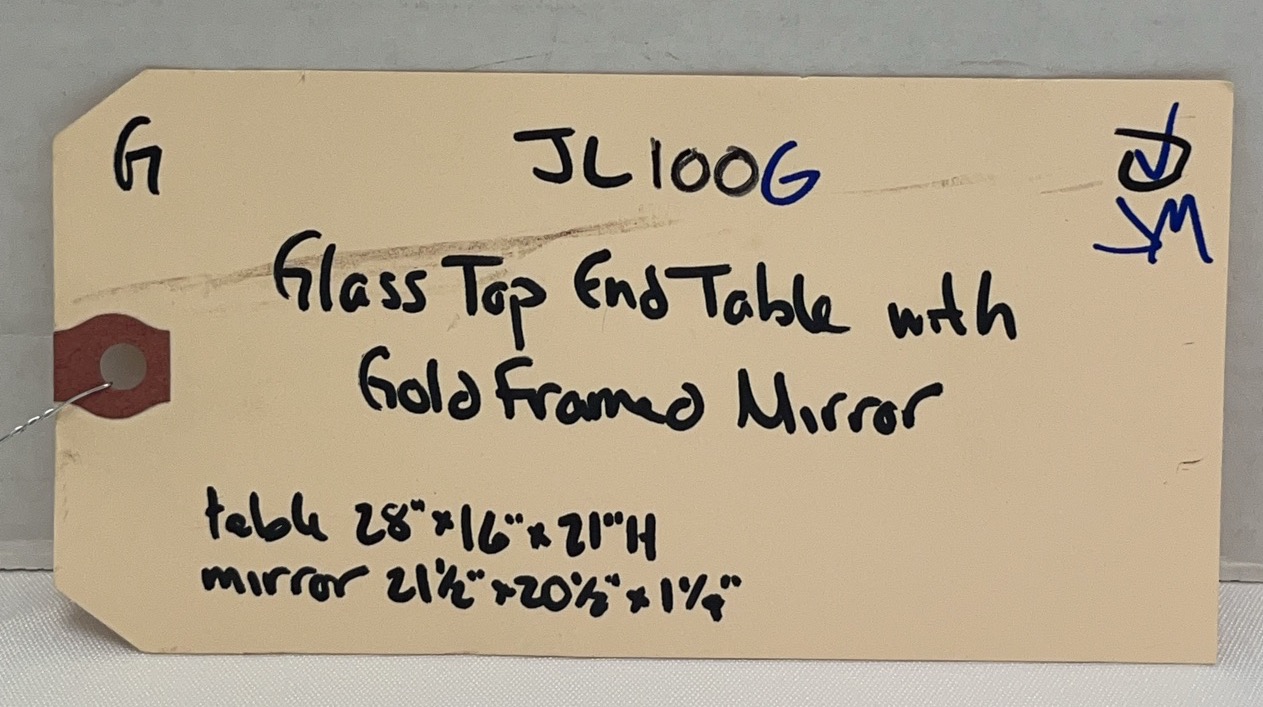 G JL100G
JM
Glass Top End Table with
Gold Framed Mirror
table 28" x 16" x 21" H
mirror 21 1/2" x 20 1/2" x 1 1/4"